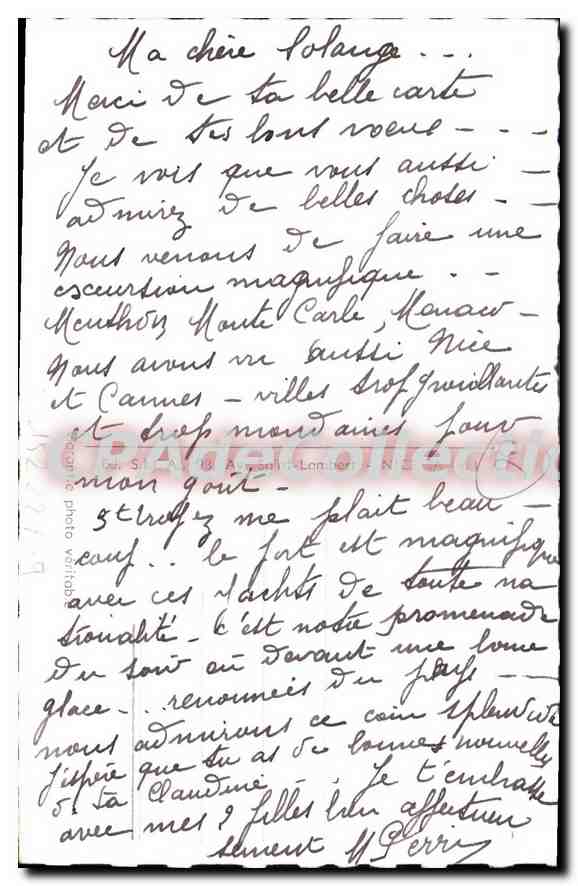 Ma chère Solange ...
Merci de ta belle carte
et de tes bons voeux - - -
Je vois que vous aussi -
admirez de belles choses - -
Nous venons de faire une
excursion magnifique . -
Menthon Monte Carle, Monaco -
Nous avons vu aussi Nice
et Cannes - villes trop grouillantes
et trop mondaines pour
CPADecollection
Ed. S.I. 98, Av. Saint-Lambert - NICE
mon goût -
St Tropez me plait beau -
coup .. le port est magnifique
avec ces Yachts de toute na
tionalité - C'est notre promenade
du soir où devant une bonne
glace - .. renommées du pays - -
nous admirons ce coin splendide
J'espère que tu as de bonnes nouvelles
d. ta Claudine - . Je t'embrasse
avec mes 2 filles bien affectueu
sement M Perrin
Façonnié photo véritable